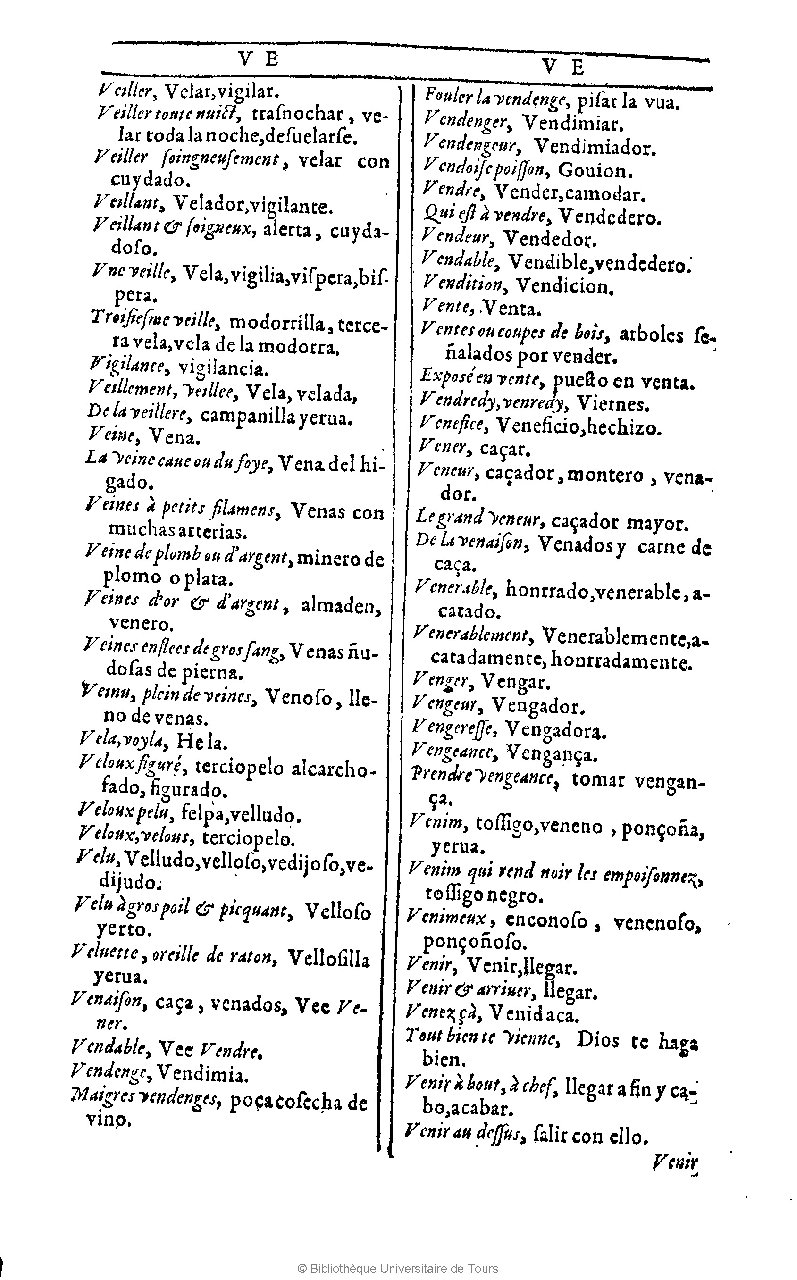 V E
Veiller, Velar,vigilar.
Veiller toute nuict, traſnochar, ve-
lar toda la noche,deſuelarſe.
Veiller ſoingneuſement, velar con
cuydado.
Veillant, Velador,vigilante.
Veillant & ſoigneux, alerta, cuyda-
doſo.
Vne veille, Vela,vigilia,viſpera,biſ-
pera.
Troiſieſme veille, modorrilla, terce-
ra vela,vela de la modorra.
Vigilance, vigilancia.
Veillement, veillee, Vela, velada,
De la veillere, campanilla yerua.
Veine, Vena.
La veine caue ou du foye, Vena del hi-
gado.
Veines à petits filamens, Venas con
muchas arterias.
Veine de plomb ou d'argent, minero de
plomo o plata.
Veines d'or & d'argent, almaden,
venero.
Veines enflees de gros ſang, Venas ñu-
doſas de pierna.
Veinu, plein de veines, Venoſo, lle-
no de venas.
Vela,voyla, He la.
Veloux figuré, terciopelo alcarcho-
fado, figurado.
Veloux pelu, felpa,velludo.
Veloux,velous, terciopelo.
Velu, Velludo,velloſo,vedijoſo,ve-
dijudo.
Velu à gros poil & picquant, Velloſo
yerto.
Veluette, oreille de raton, Velloſilla
yerua.
Venaiſon, caça, venados, Vee Ve-
ner.
Vendable, Vee Vendre.
Vendenge, Vendimia.
Maigres vendenges, poça coſecha de
vino.
V E
Fouler la vendenge, piſar la vua.
Vendenger, Vendimiar.
Vendengeur, Vendimiador.
Vendoiſe poiſſon, Gouion.
Vendre, Vender,camodar.
Qui eſt à vendre, Vendedero.
Vendeur, Vendedor.
Vendable, Vendible,vendedero.
Vendition, Vendicion.
Vente, Venta.
Ventes ou coupes de bois, arboles ſe-
ñalados por vender.
Expoſé en vente, pueſto en venta.
Vendredy,venredy, Viernes.
Venefice, Veneficio,hechizo.
Vener, caçar.
Veneur, caçador, montero, vena-
dor.
Le grand veneur, caçador mayor.
De la venaiſon, Venados y carne de
caça.
Venerable, honrrado,venerable, a-
catado.
Venerablement, Venerablemente,a-
catadamente, honrradamente.
Venger, Vengar.
Vengeur, Vengador.
Vengereſſe, Vengadora.
Vengeance, Vengança.
Prendre vengeance, tomar vengan-
ça.
Venim, toſſigo,veneno, ponçoña,
yerua.
Venim qui rend noir les empoiſonnez,
toſſigo negro.
Venimeux, enconoſo, venenoſo,
ponçoñoſo.
Venir, Venir,llegar.
Venir & arriuer, llegar.
Venez çà, Venid aca.
Tout bien te vienne, Dios te haga
bien.
Venir à bout, à chef, llegar a fin y ca-
bo,acabar.
Venir au deſſus, ſalir con ello.
Venir
© Bibliothèque Universitaire de Tours